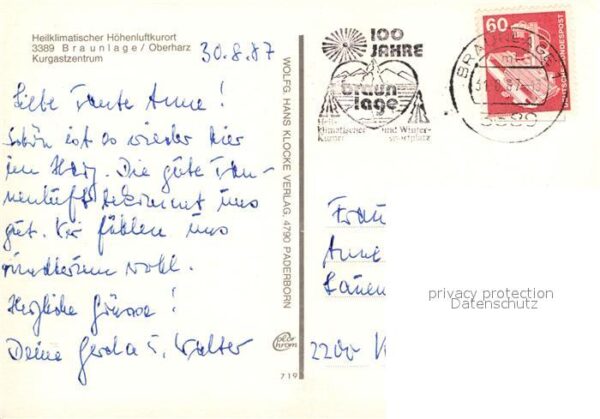 Heilklimatischer Höhenluftkurort
3389 Braunlage/Oberharz
Kurgastzentrum
30.8.87
Liebe Tante Anne!
Schön ist es wieder hier
im Harz. Die gute Tan-
nenluft bekommt uns
gut. Wir fühlen uns
rundherum wohl.
Herzliche Grüsse!
Deine Gerda u. Walter
WOLFG. HANS KLOCKE VERLAG, 4790 PADERBORN
719
100
JAHRE
braun
lage
Heil-
klimatischer und Winter-
Kurort sportplatz
BRAUNLAGE
3389
60
DEUTSCHE BUNDESPOST
Frau
Anne
2200
privacy protection
Datenschutz